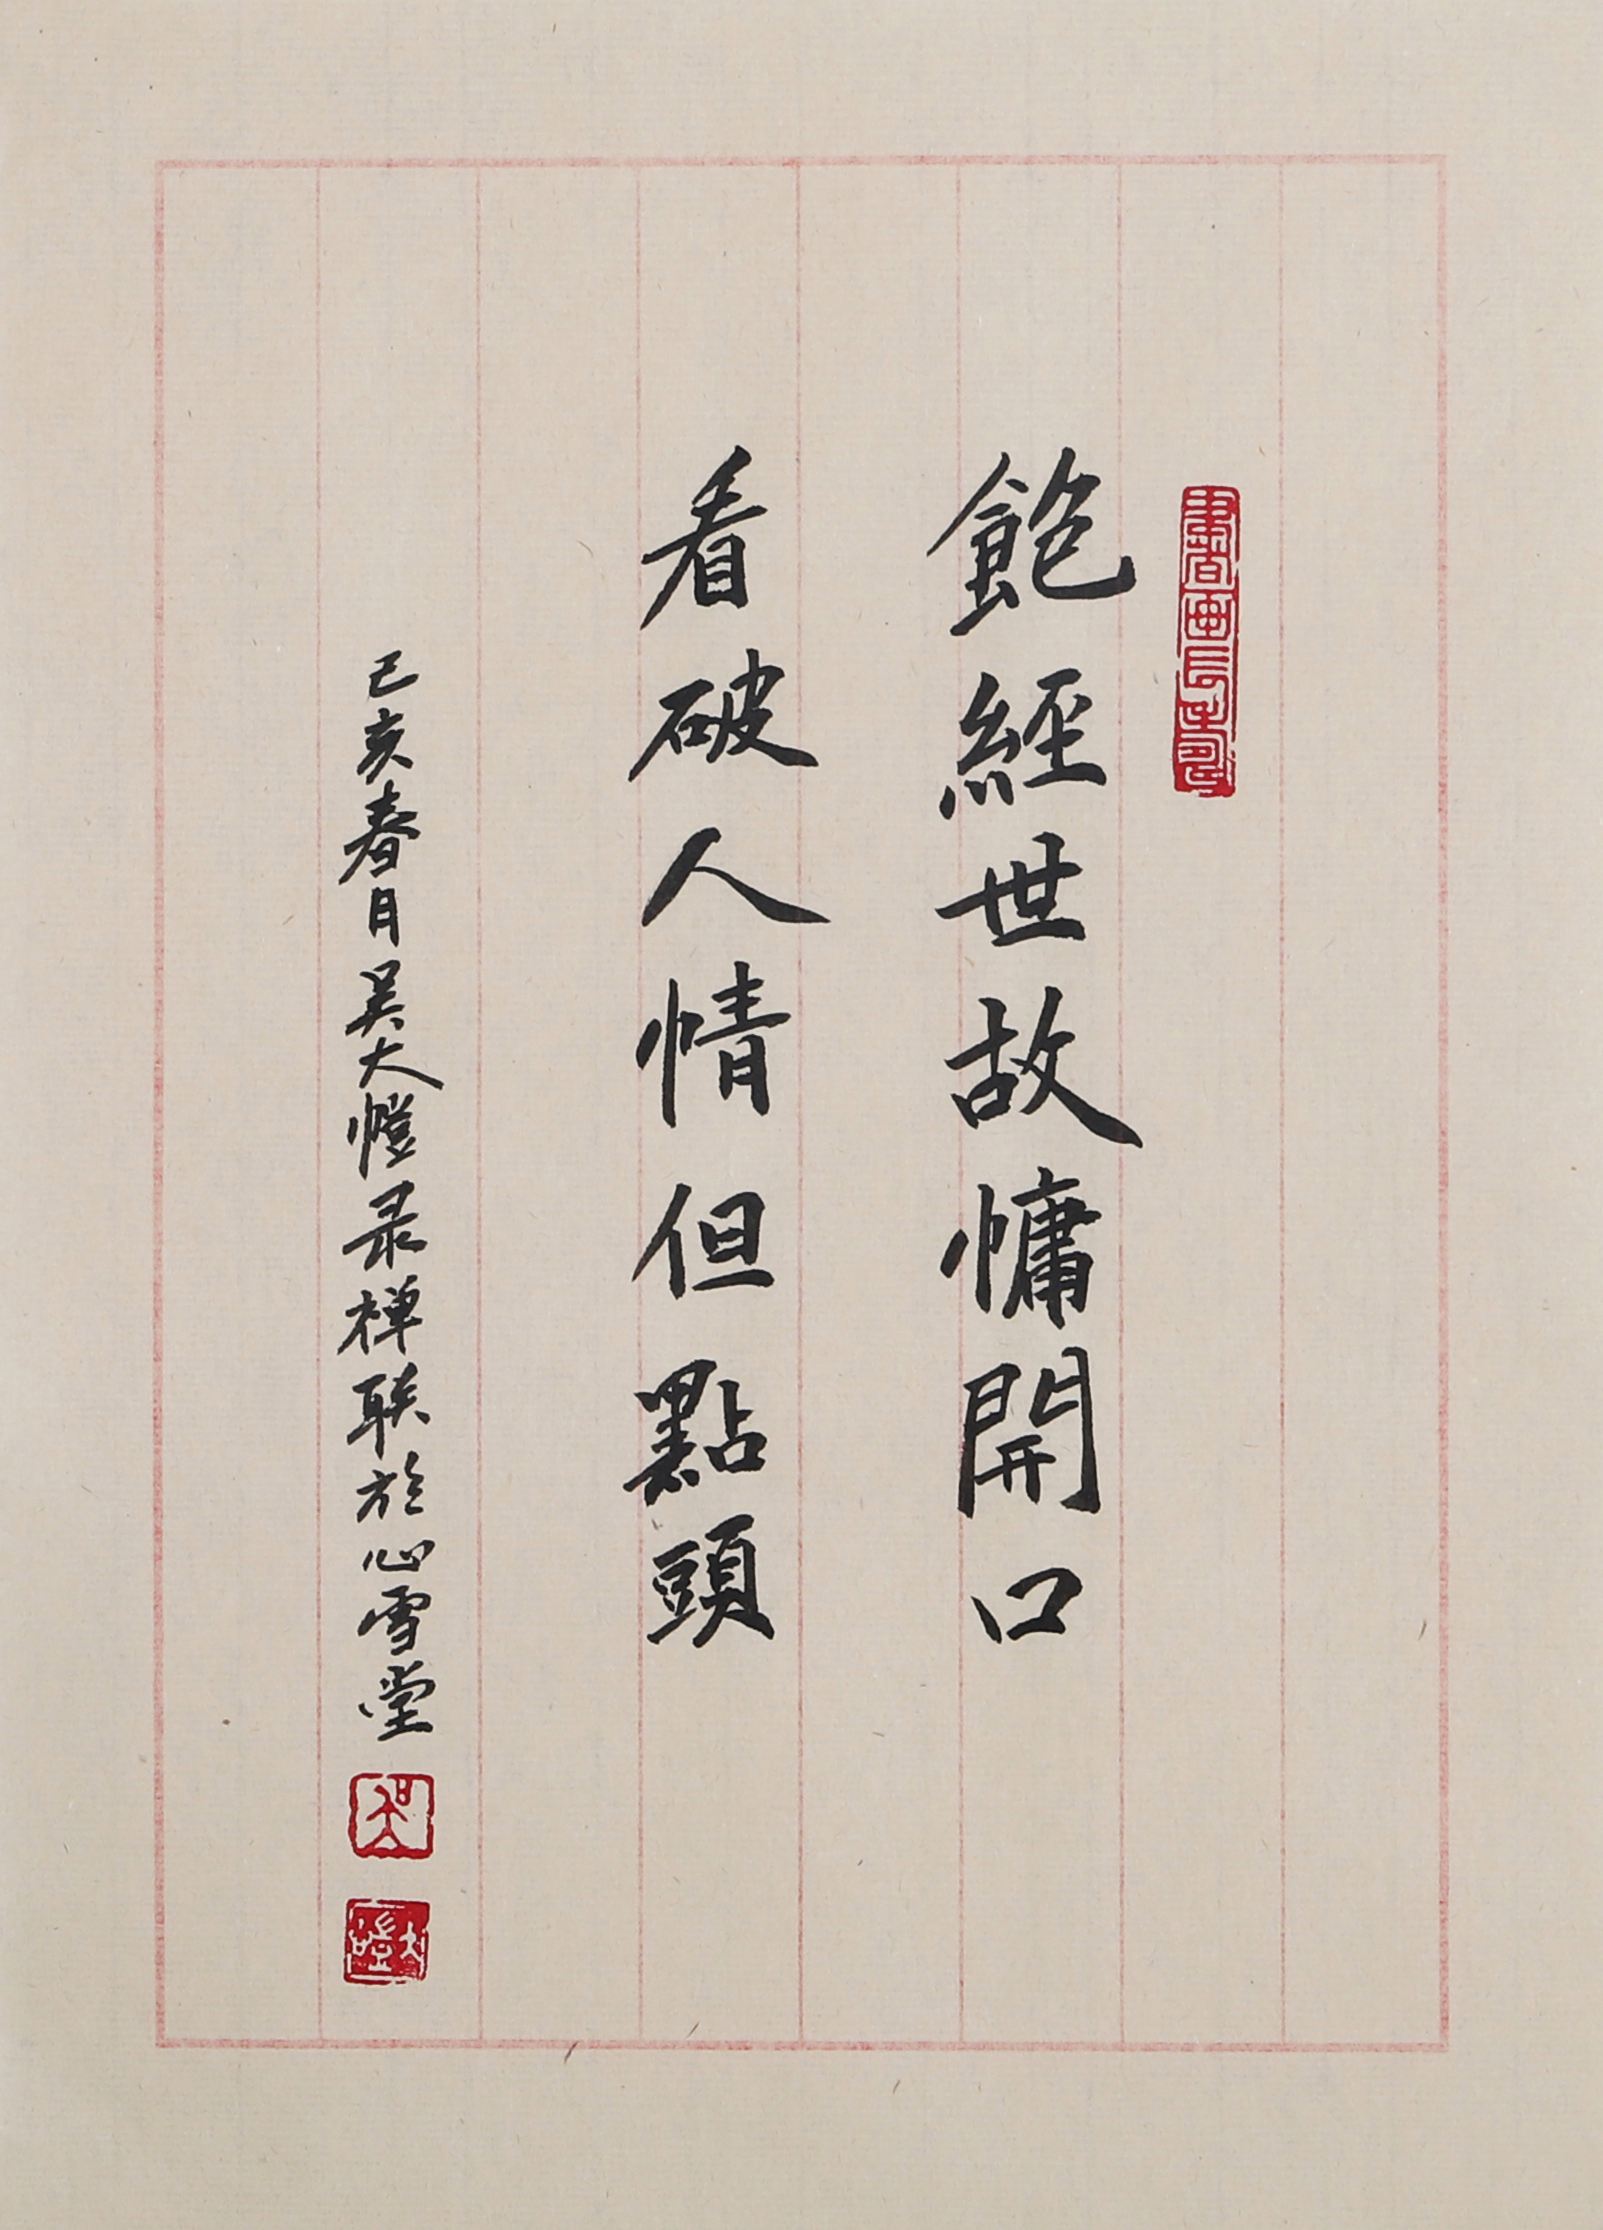 飽經世故慵開口
看破人情但點頭
己亥春月吴大愷录禅联於心雪堂